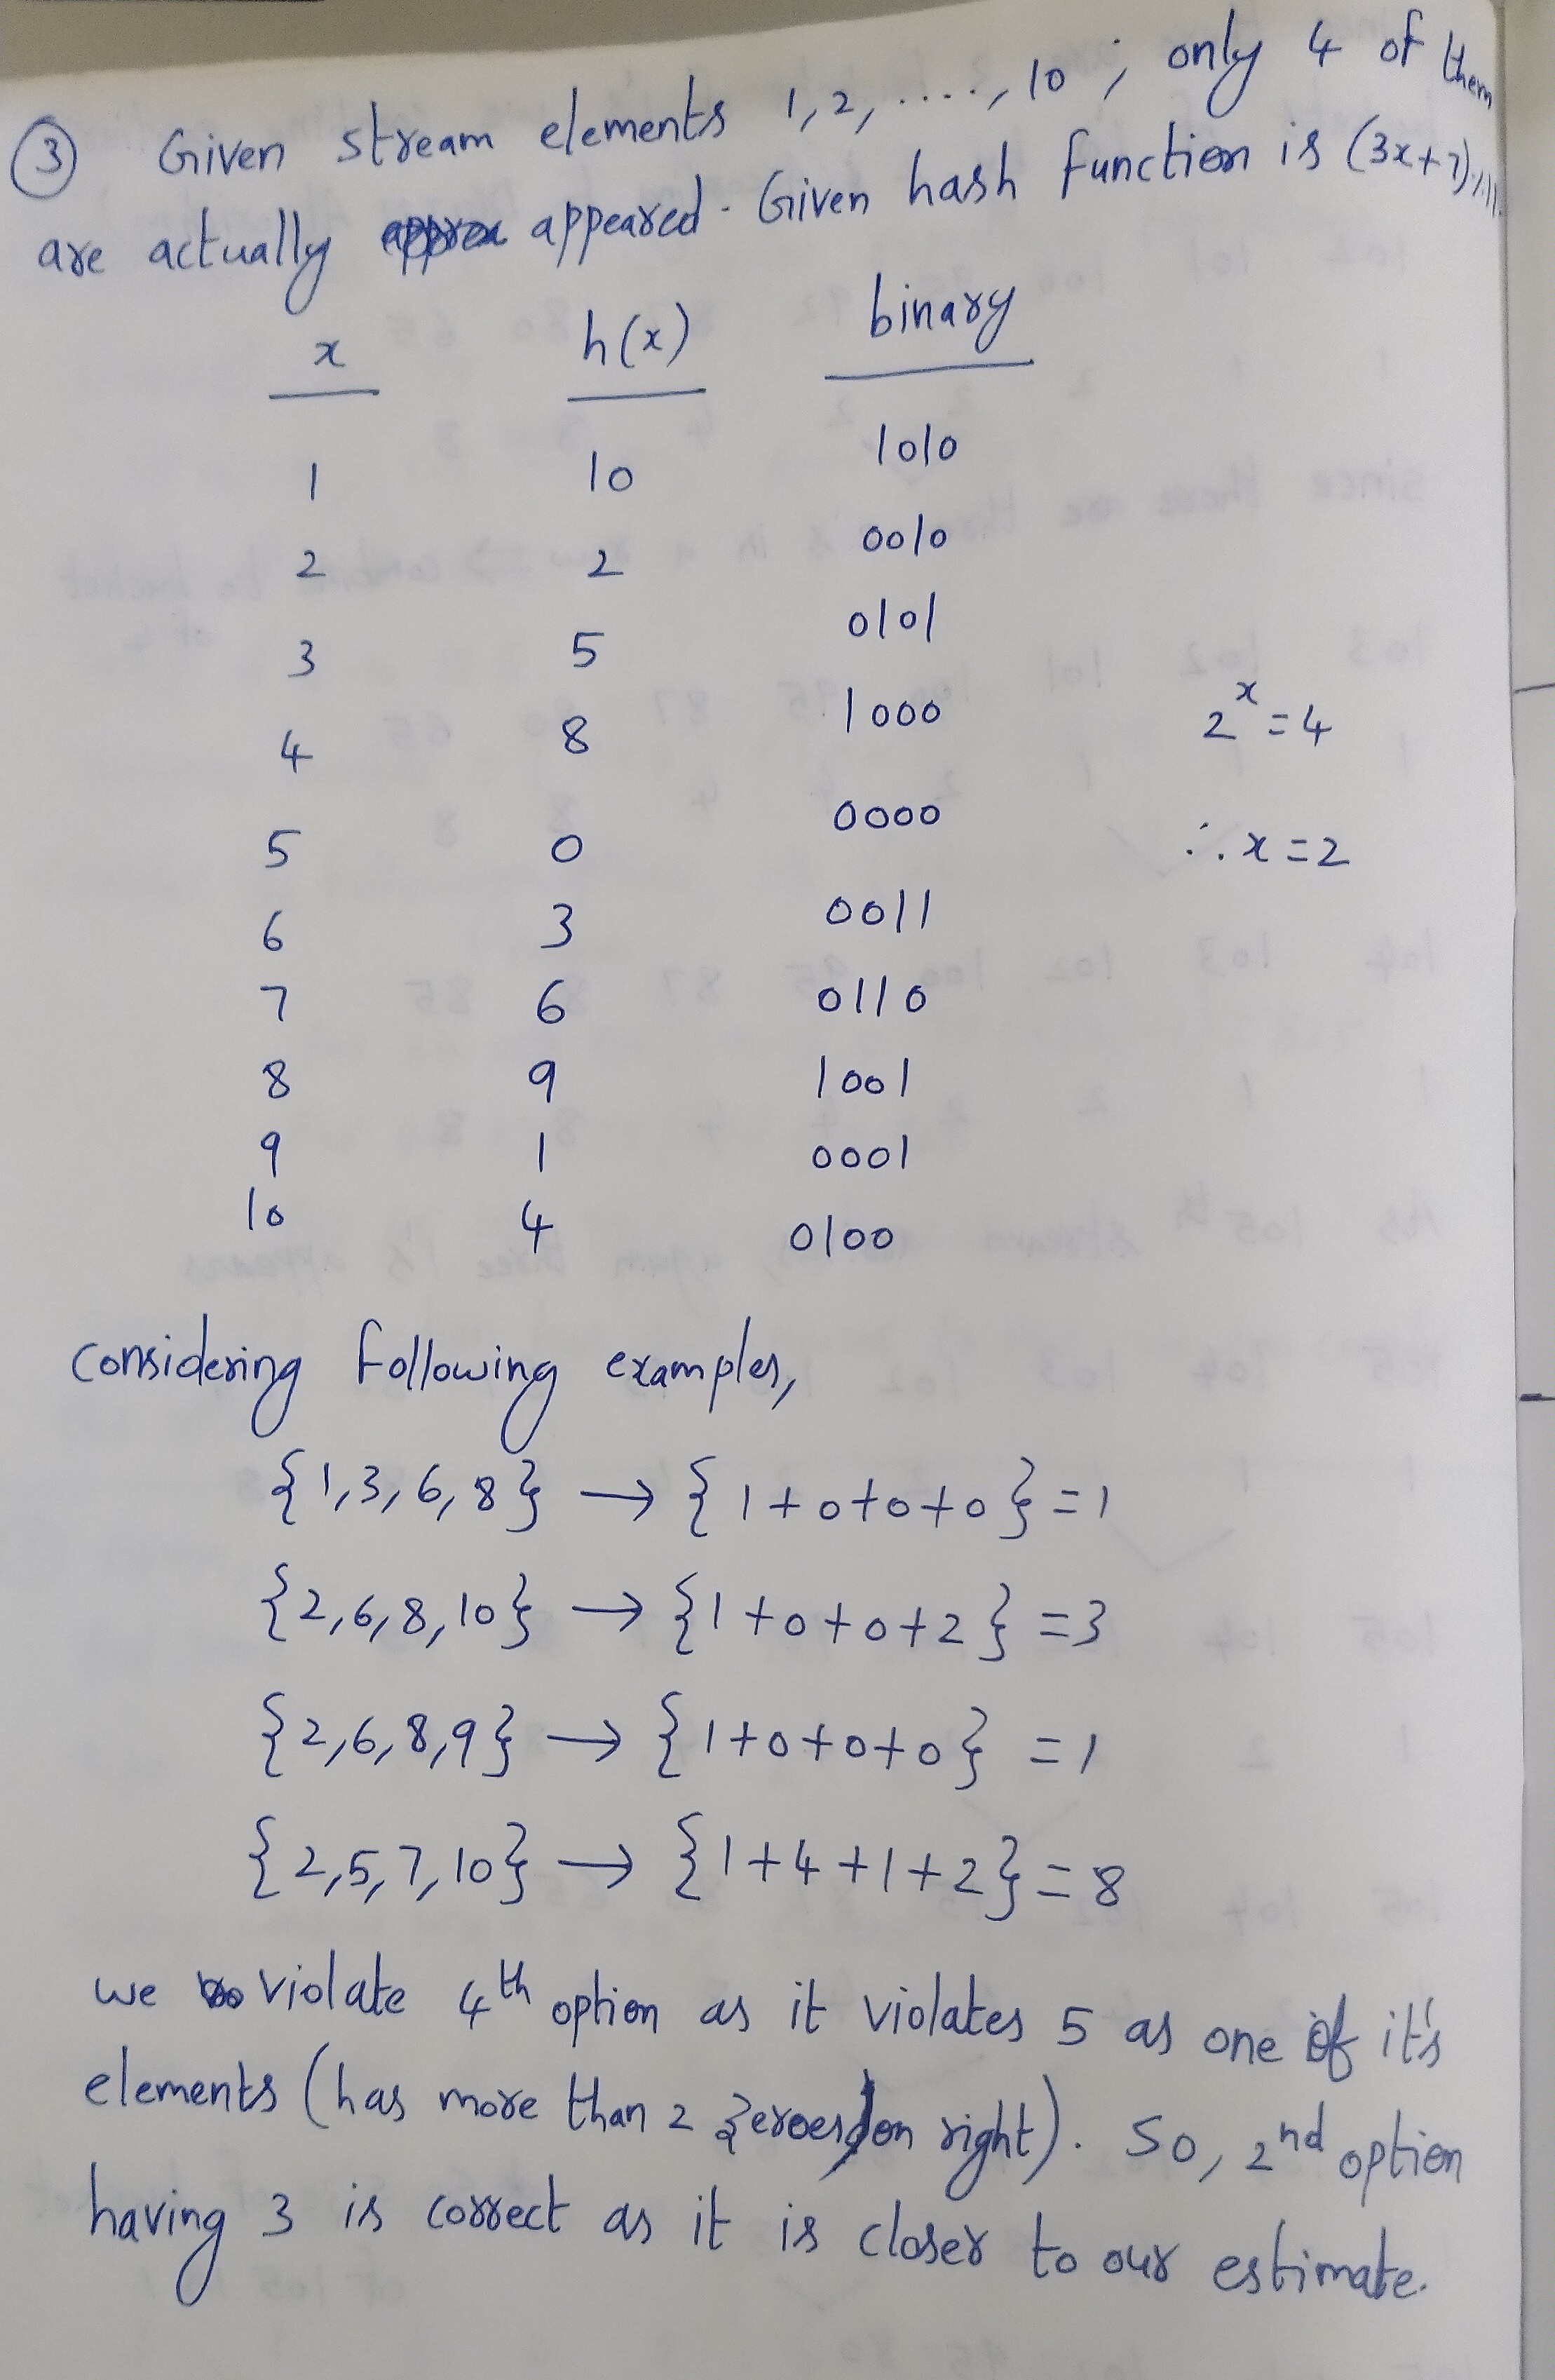 ③ Given stream elements 1, 2, ....., 10 ; only 4 of them
are actually appeared. Given hash function is (3x+7)%11.
x h(x) binary
1 10 1010
2 2 0010
3 5 0101
4 8 1000 2^x = 4
5 0 0000 ∴ x = 2
6 3 0011
7 6 0110
8 9 1001
9 1 0001
10 4 0100
considering following examples,
{1,3,6,8} → {1+0+0+0} = 1
{2,6,8,10} → {1+0+0+2} = 3
{2,6,8,9} → {1+0+0+0} = 1
{2,5,7,10} → {1+4+1+2} = 8
we violate 4th option as it violates 5 as one of it's
elements (has more than 2 zeroes on right). So, 2nd option
having 3 is correct as it is closer to our estimate.